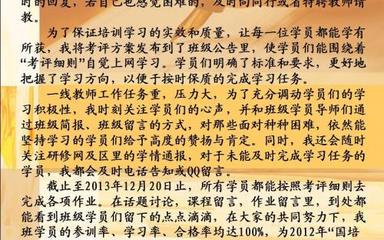 时的回复，若自己也感觉困难的，及时向同行或者特聘教师请
教。
为了保证培训学习的实效和质量，让每一位学员都能学有
所获，我将考评方案发布到了班级公告里，使学员们能围绕着
“考评细则”自觉上网学习。学员们明确了标准和要求，更好地
把握了学习方向，以便于按时保质的完成学习任务。
一线教师工作任务重，压力大，为了充分调动学员们的学
习积极性，我时刻关注学员们的心声，并和班级学员导师们通
过班级简报、班级留言的方式，对那些面对种种困难，依然能
坚持学习的学员们给予高度的赞扬与肯定。同时，我还会随时
关注研修网及区里的学情通报，对于未能及时完成学习任务的
学员，我都会及时电话告知或QQ留言。
截止至2013年12月20日止，所有学员都能按照考评细则去
完成各项作业。在话题讨论，课程留言，作业留言里，到处都
能看到班级学员们留下的点点滴滴，在大家的共同努力下，我
班学员的参训率、学习率、合格率均达100%，为2012年“国培